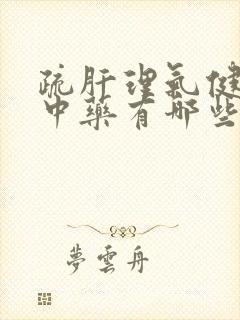 疏肝理氣健
中藥有哪些
夢雲舟